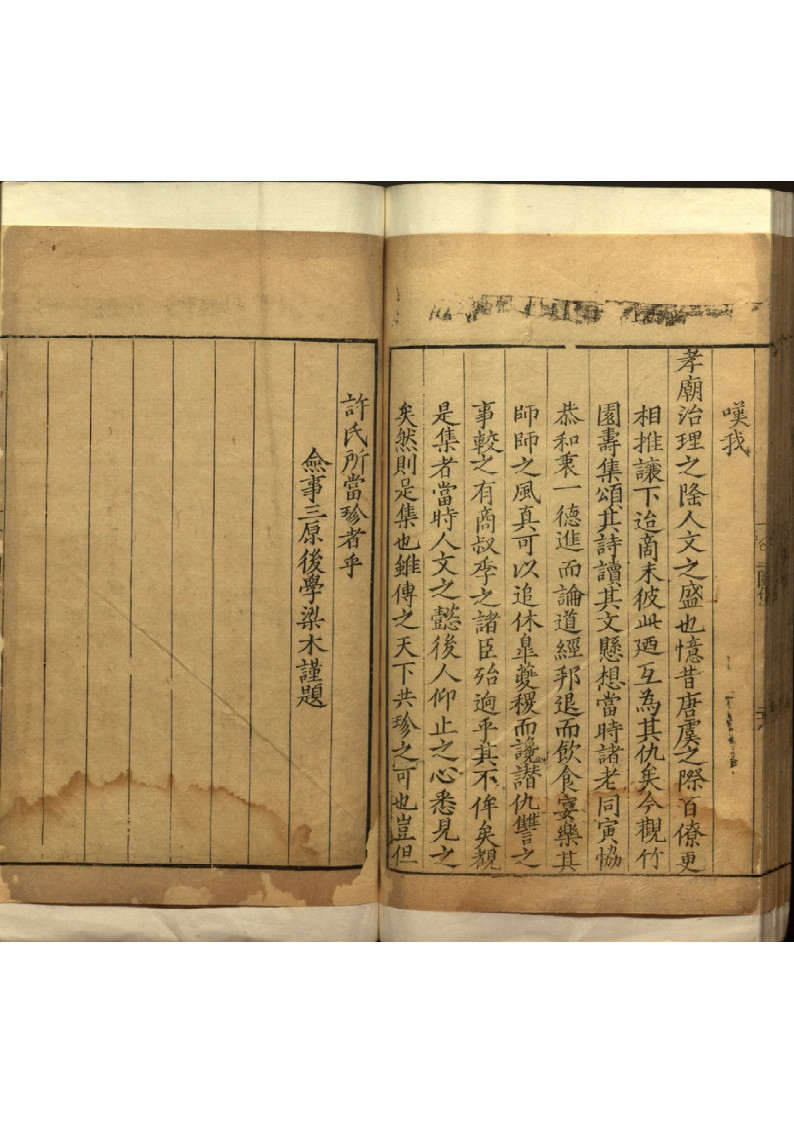 嘆我
孝廟治理之隆人文之盛也憶昔唐虞之際百僚更
相推讓下迨商末彼此廼互為其仇矣今觀竹
園壽集頌其詩讀其文懸想當時諸老同寅恊
恭和衷一德進而論道經邦退而飲食宴樂其
師師之風真可以追休臯夔稷而讒譖仇讐之
事較之有商叔季之諸臣殆逈乎其不侔矣観
是集者當時人文之懿後人仰止之心悉見之
矣然則是集也雖傳之天下共珍之可也豈但
許氏所當珍者乎
僉事三原後學梁木謹題